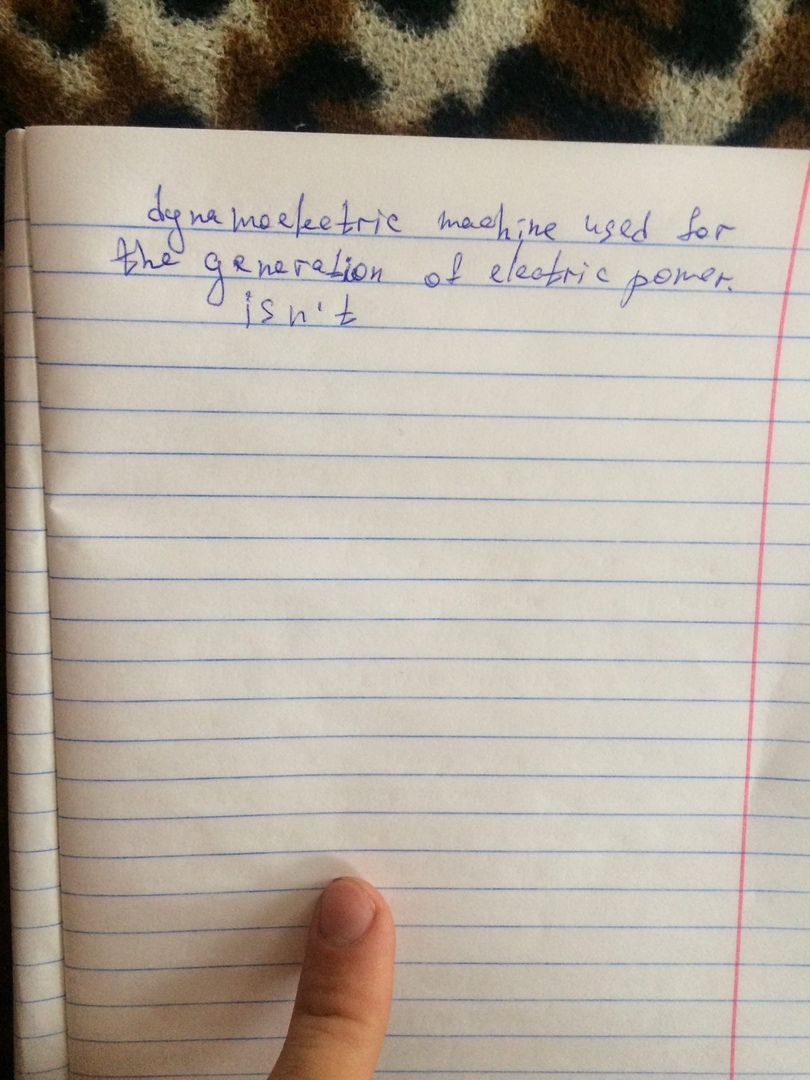 dynamoelectric machine used for
the generation of electric power.
isn't